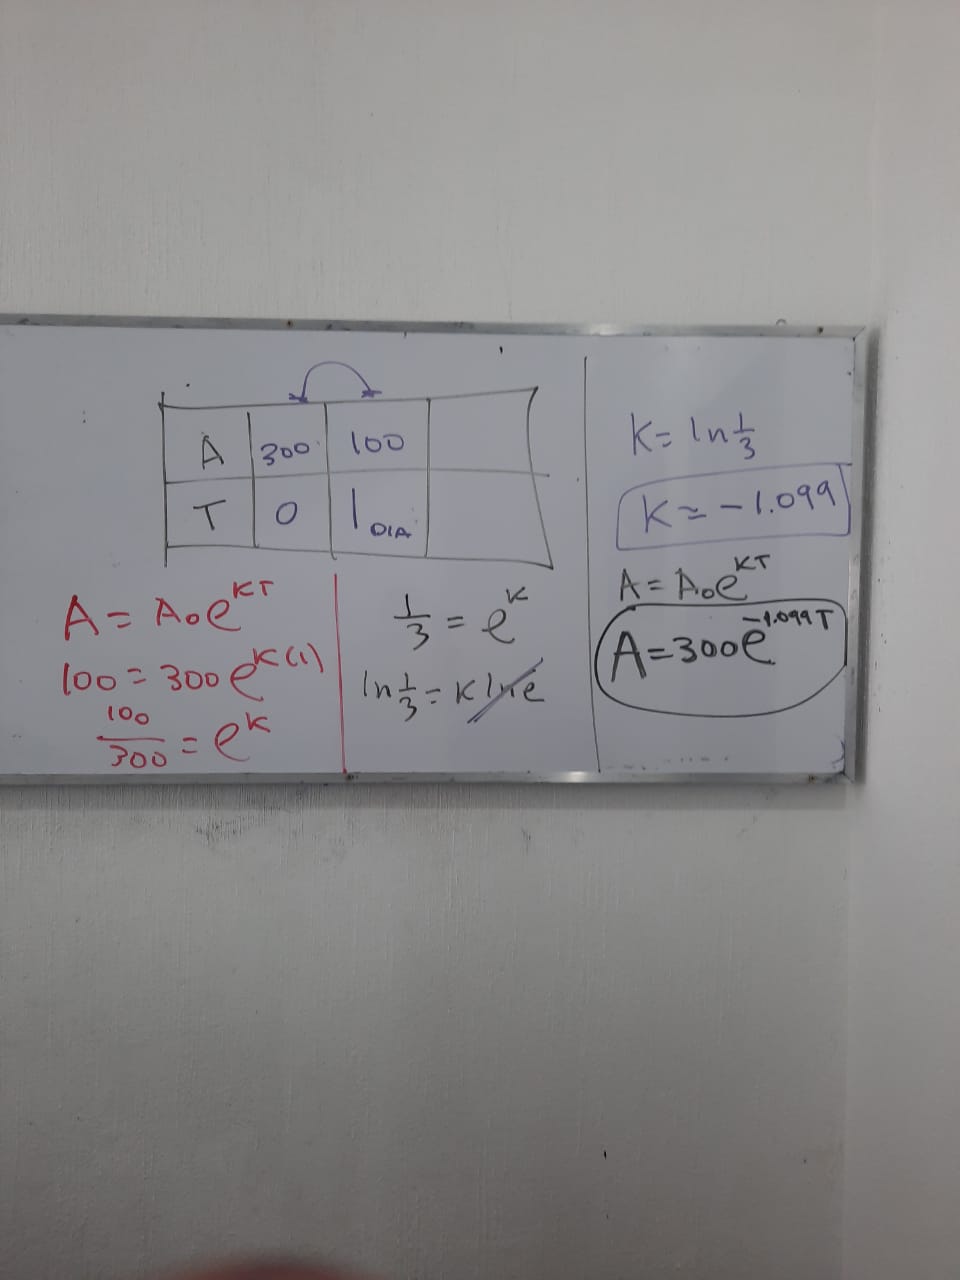 A 300 100
T 0 1 DIA
A = A₀e^KT
100 = 300 e^K(1)
100/300 = e^K
1/3 = e^K
ln 1/3 = K lne
K = ln 1/3
K ≈ -1.099
A = A₀e^KT
A = 300e^-1.099T